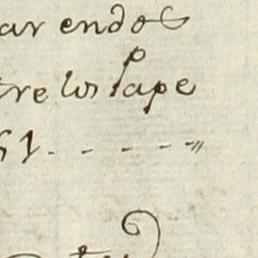 ar endos
tre los pape
51 - - - - - "